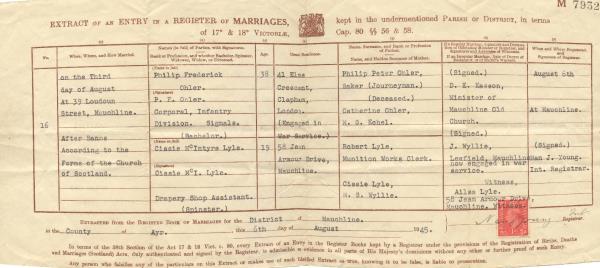 M 7932
EXTRACT OF AN ENTRY IN A REGISTER OF MARRIAGES, kept in the undermentioned PARISH OR DISTRICT, in terms
of 17° & 18° VICTORIÆ, Cap. 80 §§ 56 & 58.
No.
When, Where, and How Married.
Age.
Usual Residence.
When and Where Registered
16
on the Third
day of August
At 39 Loudoun
Street, Mauchline.
After Banns
According to the
Forms of the Church
of Scotland.
Philip Frederick
Ohler.
P. F. Ohler.
Corporal, Infantry
Division. Signals.
(Bachelor.)
Cissie McIntyre Lyle.
Cissie McI. Lyle.
Drapery Shop Assistant.
(Spinster.)
38
19
41 Elms
Crescent,
Clapham,
London.
(Engaged in
War Service.)
58 Jean
Armour Drive,
Mauchline.
Philip Peter Ohler,
Baker (Journeyman.)
(Deceased.)
Catherine Ohler,
Robert Lyle,
Munition Works Clerk.
Cissie Lyle,
M. S. Wyllie.
(Signed.)
Minister of
Mauchline Old
Church.
(Signed.)
J. Wyllie,
Leafield, Mauchline
now engaged in war
service.
Witness,
Ailsa Lyle.
58 Jean Armour Drive,
Mauchline. Witness.
August 6th
At Mauchline.
(Signed)
Ian J. Young.
Int. Registrar.
EXTRACTED FROM THE REGISTER BOOK OF MARRIAGES for the District of Mauchline.
in the County of Ayr. this 6th day of August 1945.
Registrar.
In terms of the 58th Section of the Act 17 & 18 Vict. c. 80, every Extract of an Entry in the Register Books kept by a Registrar under the provisions of the Registration of Births, Deaths
and Marriages (Scotland) Acts, duly authenticated and signed by the Registrar, is admissible in evidence in all parts of His Majesty's dominions without any other or further proof of such Entry.
Any person who falsifies any of the particulars on this Extract or makes use of such falsified Extract as true, knowing it to be false, is liable to prosecution.